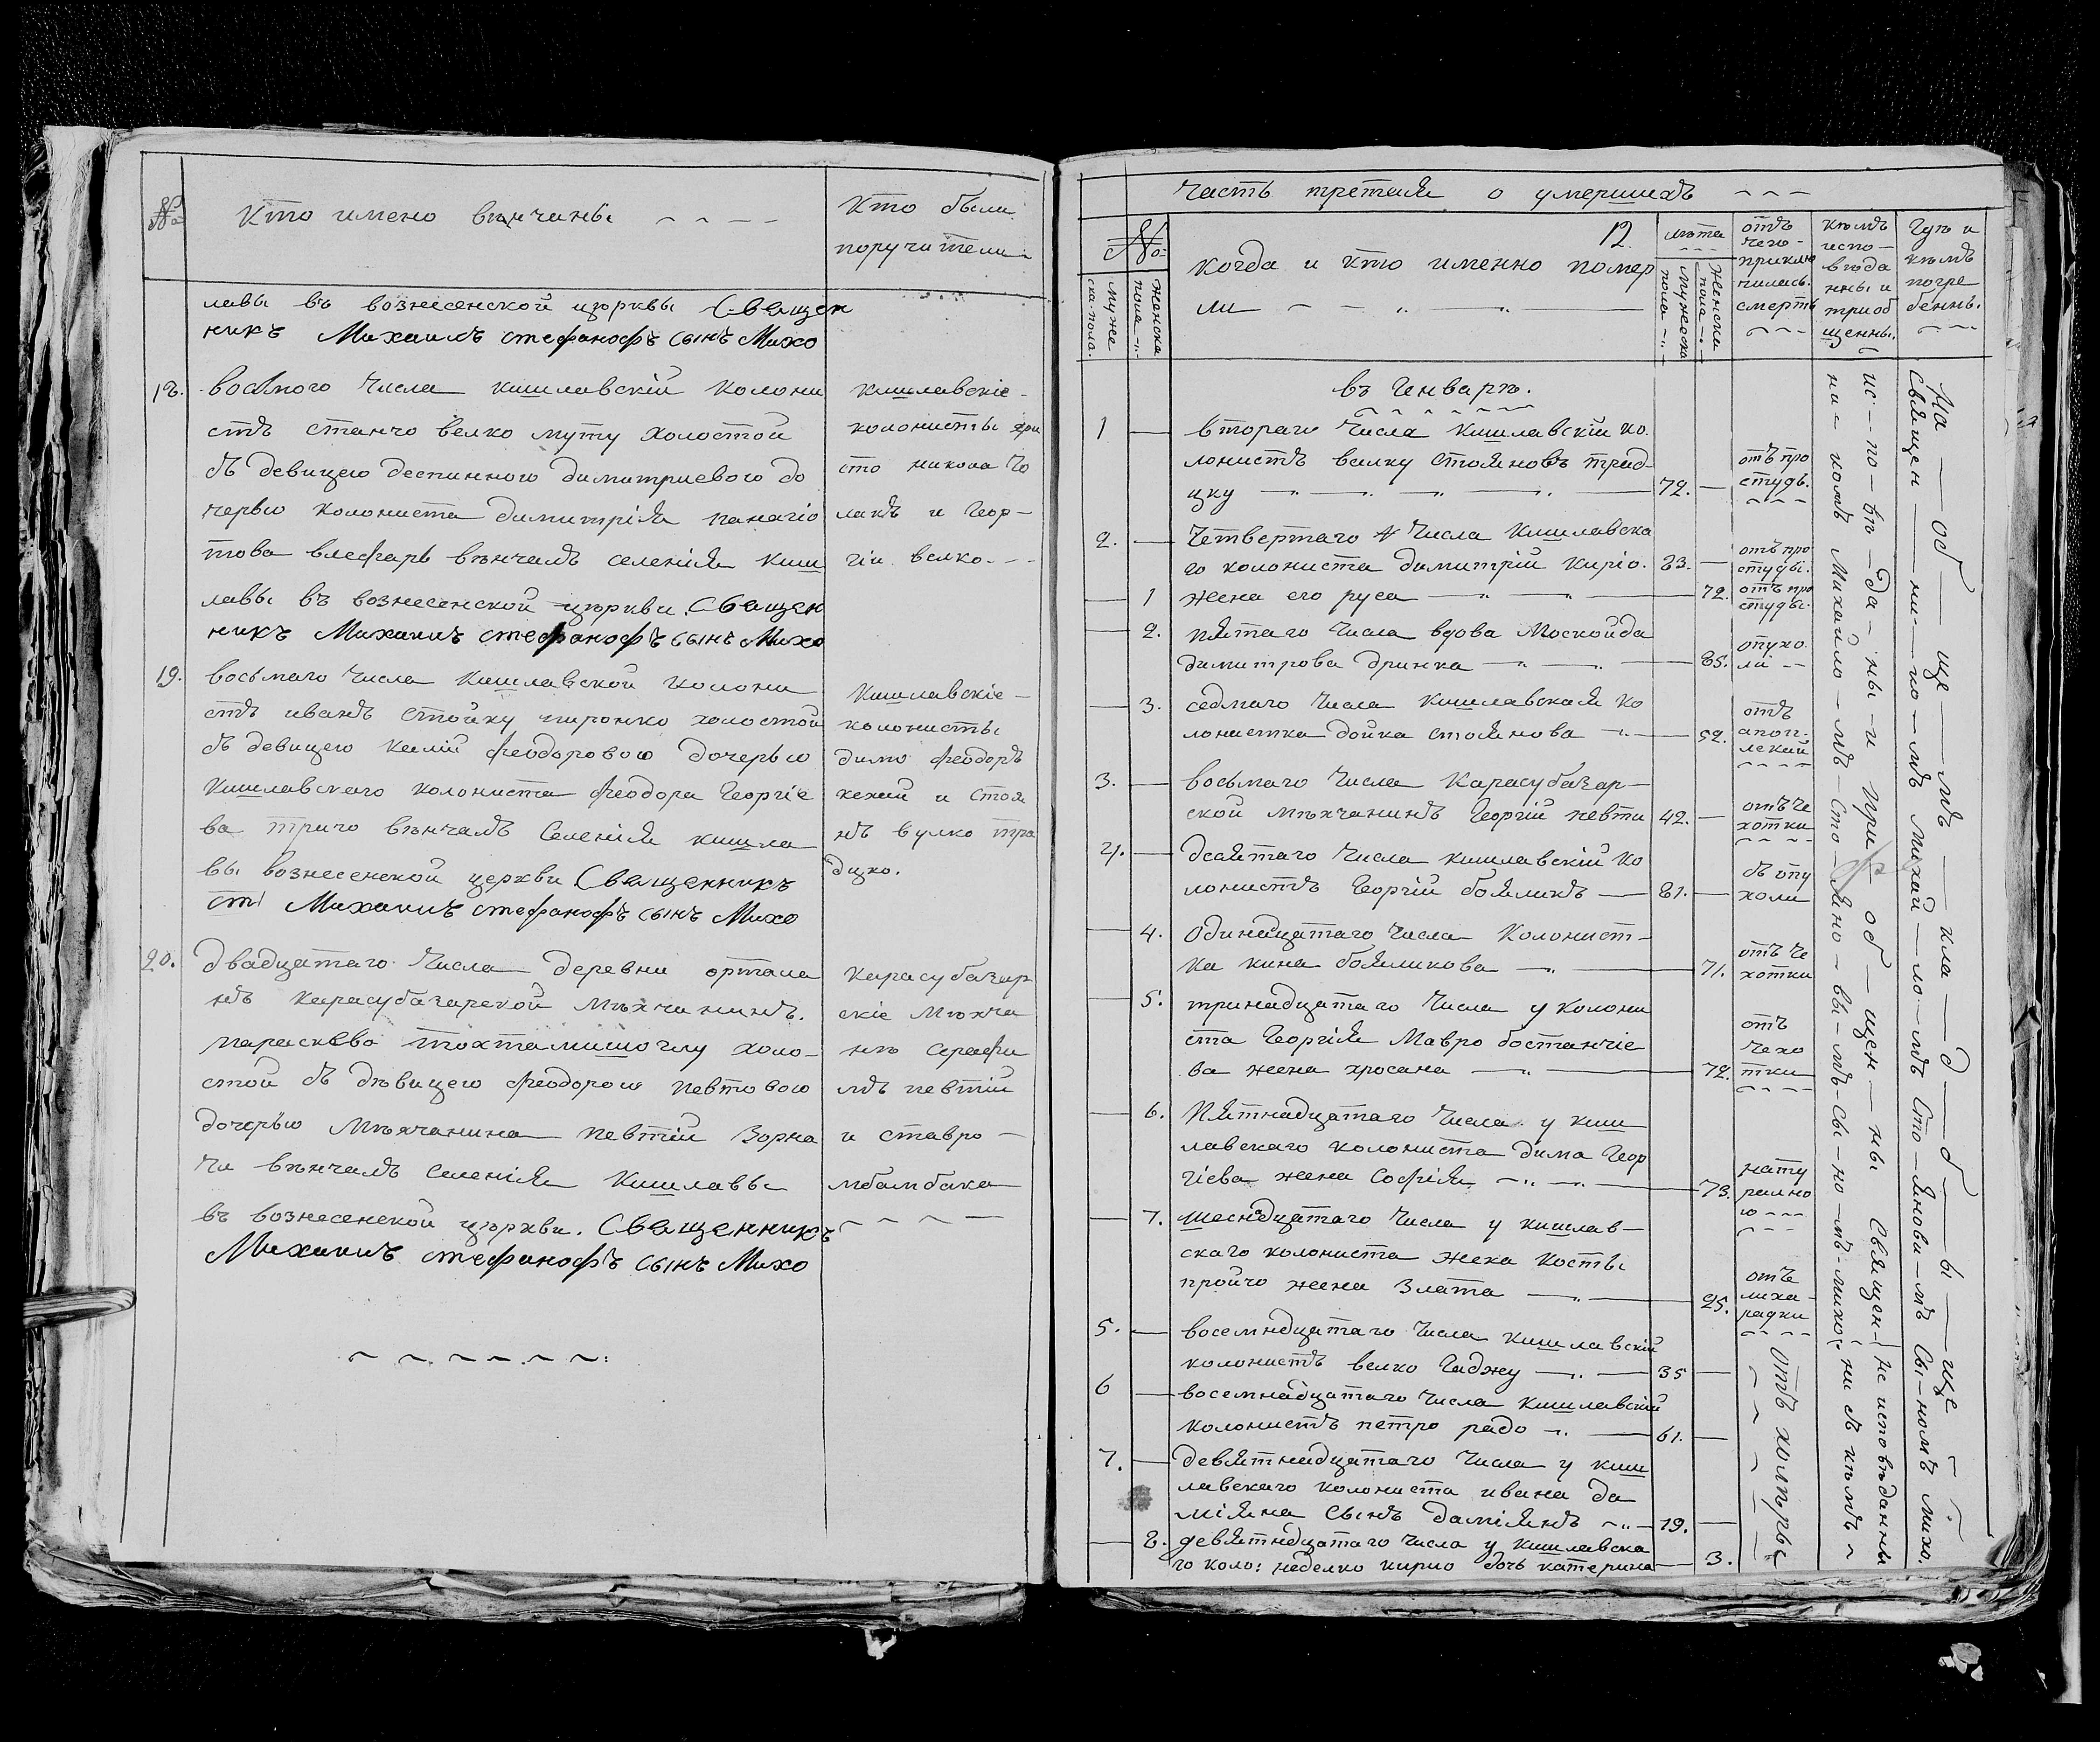 №
Кто имено вѣнчаны
Кто были
поручители
лавы въ вознесенской цѣрквы Священ
никъ Михаилъ стефанофъ сынъ Михо
18.
восмого числа кишлавскій колони
стъ станчо велко муту холостой
съ девицею деспинною димитриевою до
черью колониста димитрія панагіо
това влефарь вѣнчалъ селенія киш
лавы въ вознесенской цѣркви. Священ
никъ Михаилъ стефанофъ сынъ Михо
кишлавскіе
колонисты хри
сто никола чо
лакъ и Геор-
гіи велко.
19.
восьмаго числа Кишлавской колони
стъ иванъ стойку чиронко холостой
съ девицею калій феодоровою дочерью
Кишлавскаго колониста феодора Георгіе
ва тричо вѣнчалъ Селенія кишла
вы вознесенской церкви Священникъ
Михаилъ стефанофъ сынъ Михо
Кишлавскіе
колонисты
димо феодоръ
кехай и стоя
нъ вулко тра
дцко.
20.
Двадцатаго числа деревни ортала
нъ карасубазарской мѣхчанинъ.
параскево тохтамишоглу холо-
стой съ дѣвицею феодорою певтовою
дочерью мѣхчанина певтій Зорна
чи вѣнчалъ селенія Кишлавы
въ вознесенской цѣркви. Священникъ
Михаилъ стефанофъ сынъ Михо
карасубазар
скіе мѣхча
не серафи
мъ певтій
и ставро
мбамбака
Часть третая о умершихъ
№
муже
ска пола.
женска
пола
12
когда и кто именно помер
ли
лѣта
Мужеска
пола
Женскаго
пола
отъ
чего
приклю
чилась
смерть
кѣмъ
испо-
вѣда
нны и
приоб
щенны.
Гдѣ и
кѣмъ
погре
бенны.
въ Генварѣ.
1
втораго числа кишлавскій ко
лонистъ велку стояновъ трад
цку
72.
отъ про
студы.
2.
Четвертаго числа Кишлавска
го колониста димитрій киріо.
83.
отъ про
студы.
1
жена его руса
72.
отъ про
студы.
2.
пятаго числа вдова Москойда
димитрова дринка
85.
опухо
лі
3.
седмаго числа Кишлавская ко
лонистка дойка стоянова
52.
отъ
апоп-
лексіи
3.
восьмаго числа Карасубазар-
ской мѣхчанинъ Георгій певти
42.
отъ че
хотки
4.
десятаго числа кишлавскій ко
лонистъ Георгій бояликъ
81.
съ опу
холи
4.
одинадцатаго числа Колонист-
ка кина бояликова
71.
отъ че
хотки
5.
тринадцатаго числа у колони
ста Георгія Мавро бостанчіе
ва жена хросана
72.
отъ
чехо
тки
6.
Пятнадцатаго числа у киш
лавскаго колониста дима Геор
гіева жена Софія
73.
нату
рално
ю
7.
шеснадцатаго числа у кишлав-
скаго колониста жека косты
пройчо жена Злата
25.
отъ
лиха-
радки
5.
восемнадцатаго числа кишлавскій
колонистъ велко Гаджу
35
6
восемнадцатаго числа кишлавскій
колонистъ петро радо
61.
7.
девятнадцатаго числа у киш
лавскаго колониста ивана да
міяна сынъ даміянъ
19.
8.
девятнадцатаго числа у кишлавска
го коло: неделко кирио дочь катерина
3.
отъ холѣры
ис-по-вѣ-да-ны-и при-об-щен-ны Священ-
ни-комъ Михайло-мъ-Сто-яно-вы-мъ-сы-но-мъ-михо
не исповѣданны
ни съ кѣмъ
На-об-ще-мъ-кла-д-б-ы-ще
Священ-ни-ко-мъ Михай-ло-мъ Сто-янови-мъ Сы-номъ михо.